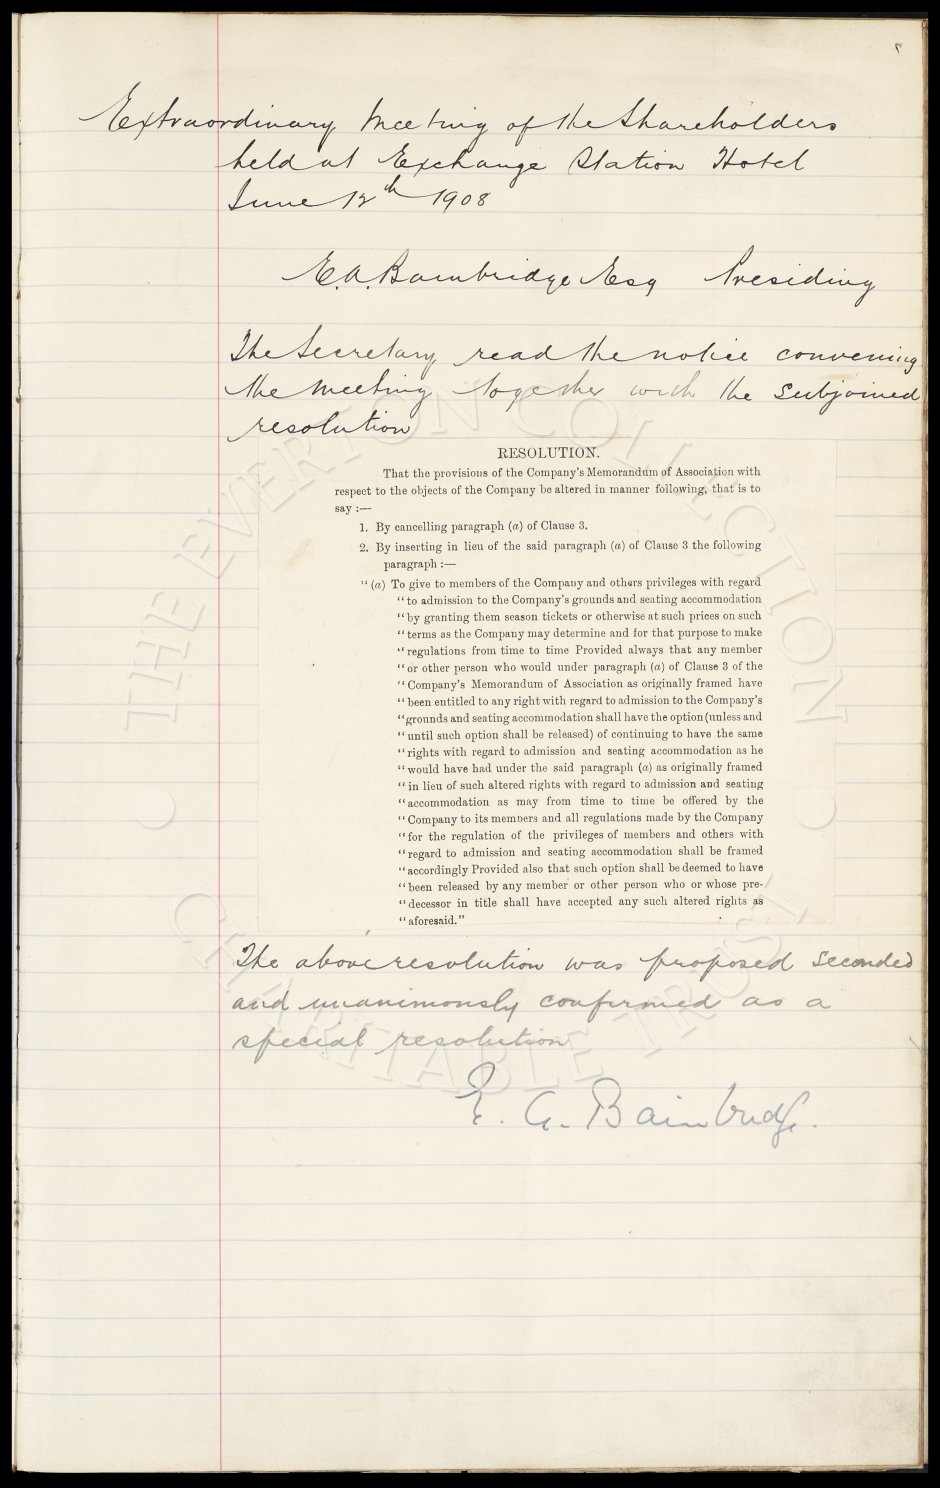 Extraordinary Meeting of the Shareholders
held at Exchange Station Hotel
June 12th 1908
E.A. Bainbridge Esq Presiding
The Secretary read the notice convening
the meeting together with the subjoined
resolution
RESOLUTION.
That the provisions of the Company's Memorandum of Association with
respect to the objects of the Company be altered in manner following, that is to
say :—
1. By cancelling paragraph (a) of Clause 3.
2. By inserting in lieu of the said paragraph (a) of Clause 3 the following
paragraph :—
"(a) To give to members of the Company and others privileges with regard
"to admission to the Company's grounds and seating accommodation
"by granting them season tickets or otherwise at such prices on such
"terms as the Company may determine and for that purpose to make
"regulations from time to time Provided always that any member
"or other person who would under paragraph (a) of Clause 3 of the
"Company's Memorandum of Association as originally framed have
"been entitled to any right with regard to admission to the Company's
"grounds and seating accommodation shall have the option (unless and
"until such option shall be released) of continuing to have the same
"rights with regard to admission and seating accommodation as he
"would have had under the said paragraph (a) as originally framed
"in lieu of such altered rights with regard to admission and seating
"accommodation as may from time to time be offered by the
"Company to its members and all regulations made by the Company
"for the regulation of the privileges of members and others with
"regard to admission and seating accommodation shall be framed
"accordingly Provided also that such option shall be deemed to have
"been released by any member or other person who or whose pre-
"decessor in title shall have accepted any such altered rights as
"aforesaid."
The above resolution was proposed seconded
and unanimously confirmed as a
special resolution
E. A. Bainbridge.
THE EVERTON COLLECTION
CHARITABLE TRUST